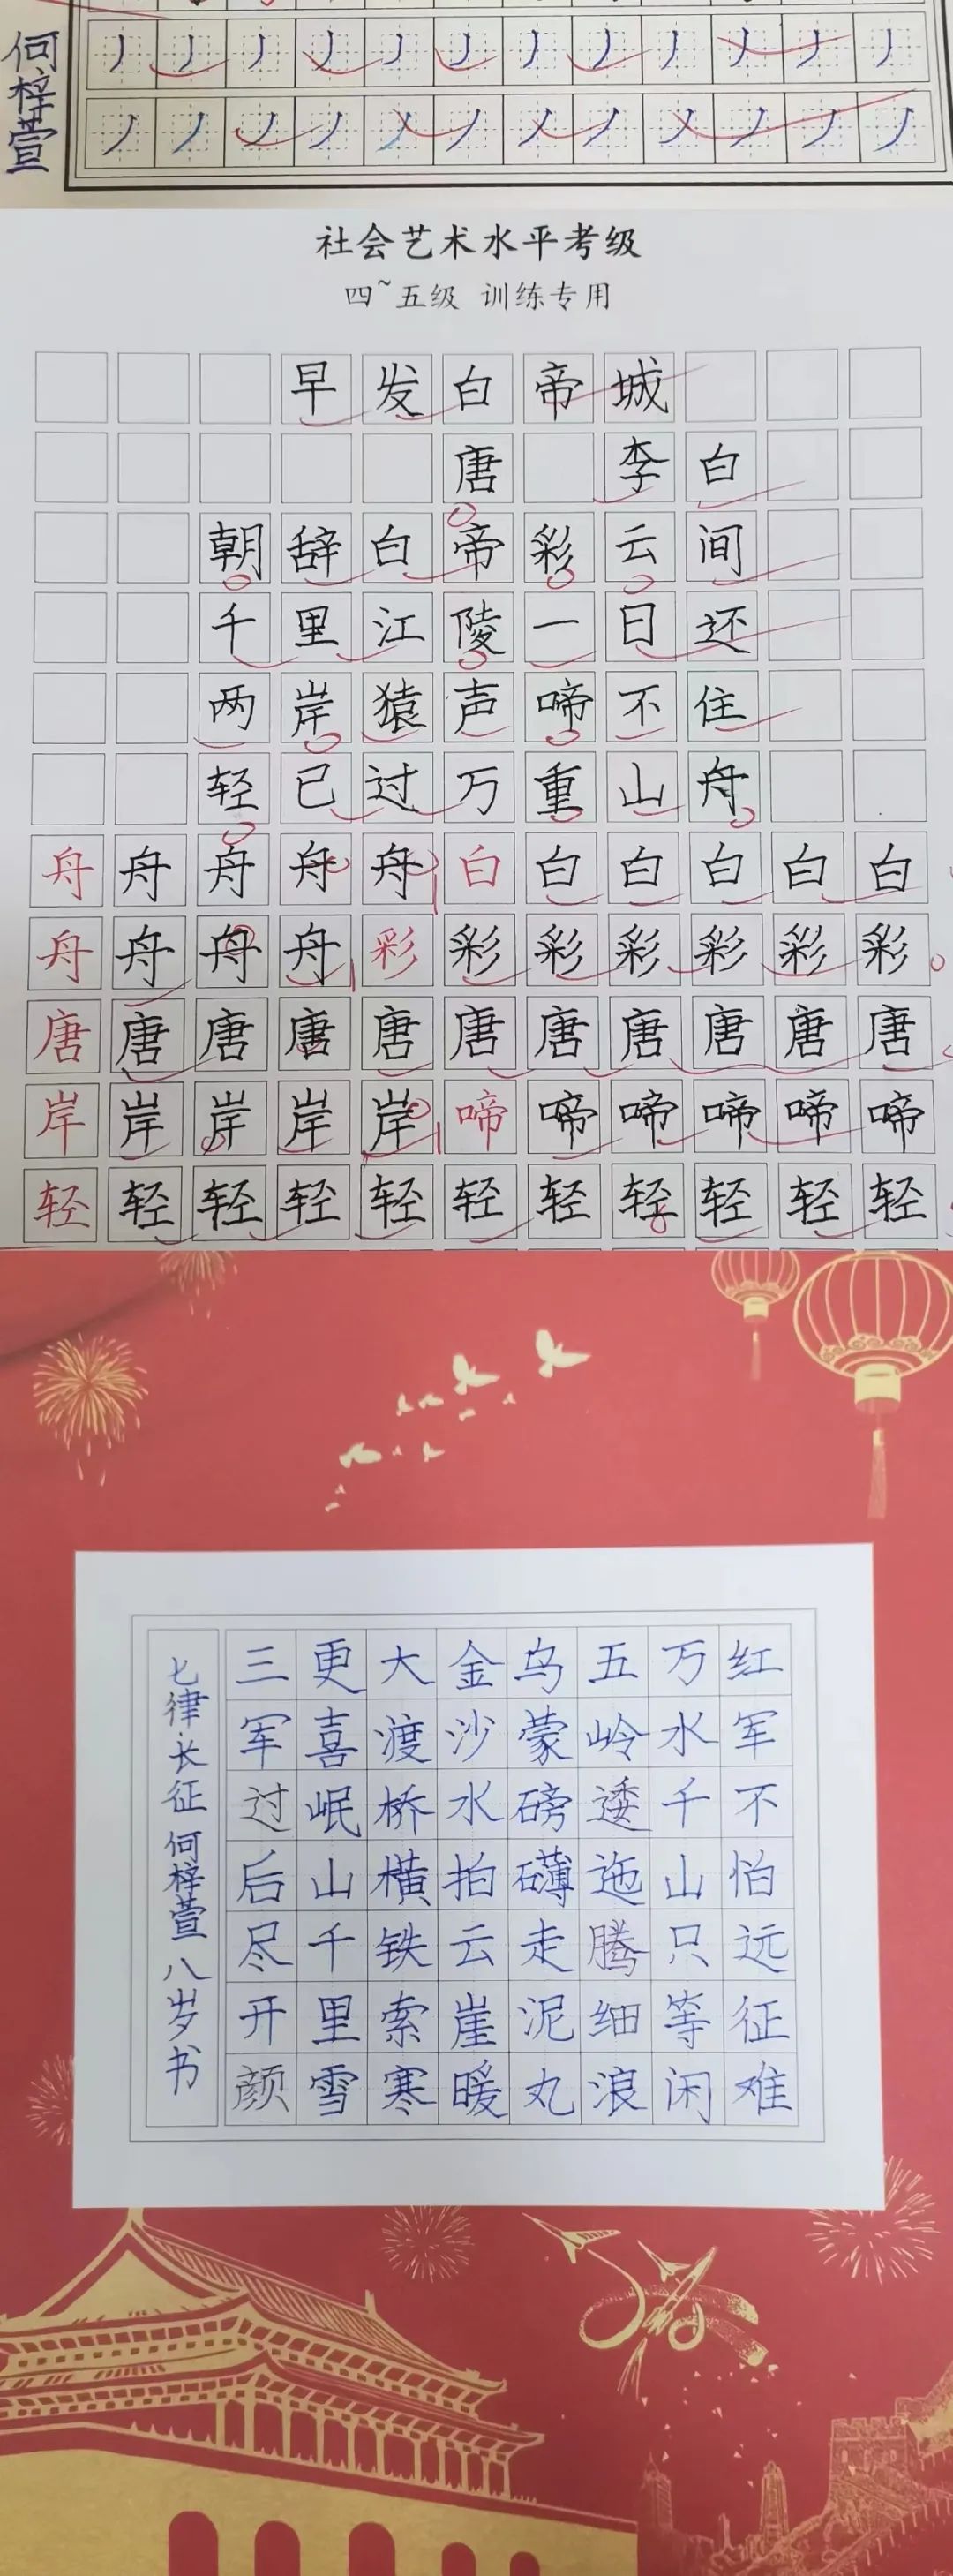 何梓萱
社会艺术水平考级
四~五级 训练专用
早发白帝城
唐 李白
朝辞白帝彩云间
千里江陵一日还
两岸猿声啼不住
轻已过万重山舟
舟舟舟舟舟白白白白白白
舟舟舟舟彩彩彩彩彩彩彩
唐唐唐唐唐唐唐唐唐唐唐
岸岸岸岸岸啼啼啼啼啼啼
轻轻轻轻轻轻轻轻轻轻轻
红军不怕远征难
万水千山只等闲
五岭逶迤腾细浪
乌蒙磅礴走泥丸
金沙水拍云崖暖
大渡桥横铁索寒
更喜岷山千里雪
三军过后尽开颜
七律·长征 何梓萱 八岁书